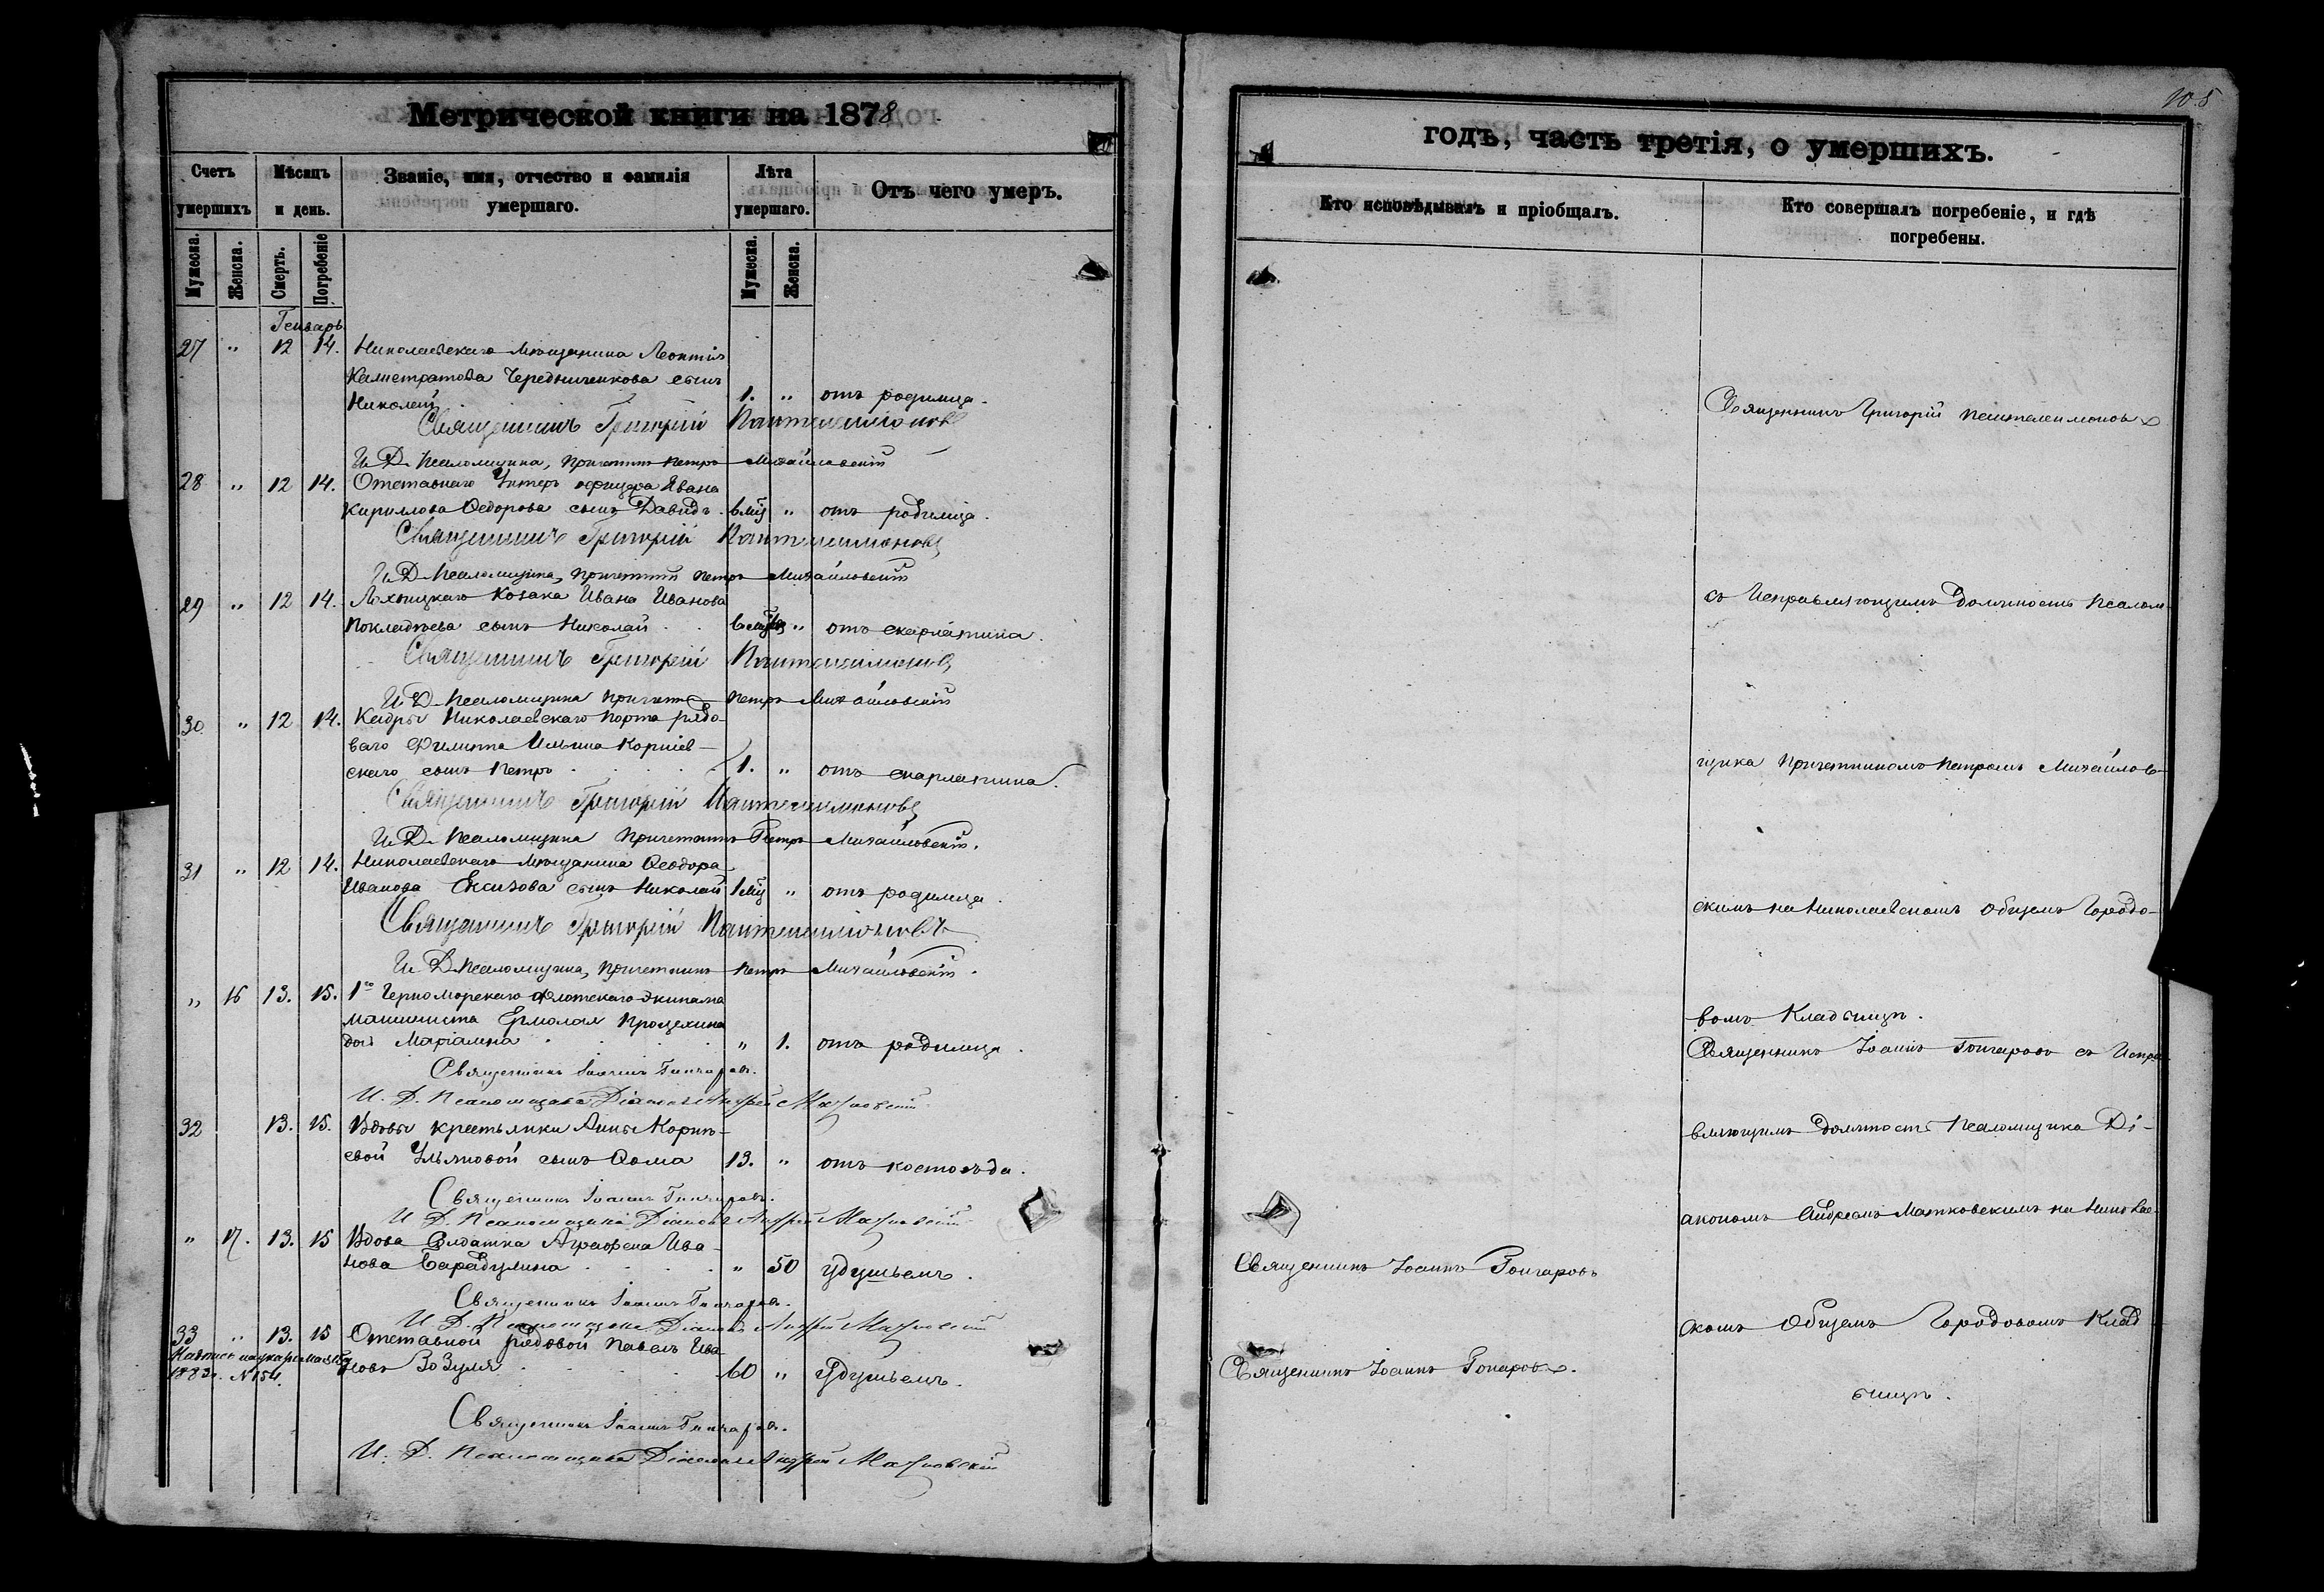 Метрической книги на 1878
Счетъ умершихъ
Мѣсяцъ и день.
Званіе, имя, отчество и фамилія умершаго.
Лѣта умершаго.
Отъ чего умеръ.
Мужеска.
Женска.
Смерть.
Погребеніе
Мужеска.
Женска.
Генварь
27 " 12 14. Николаевскаго мѣщанина Леонтія
Калистратова Чередниченкова сынъ
Николай 1. " отъ родимца.
Священникъ Григорій Пантелеимоновъ
И. Д. Псаломщика, Причетникъ Петръ Михайловскій
28 " 12 14. Отставнаго Унтеръ офицера Ивана
Кирилова Ѳедорова сынъ Давидъ. 6 мѣс " отъ родимца.
Священникъ Григорій Пантелеимоновъ
И. Д. Псаломщика, Причетникъ Петръ Михайловскій
29 " 12 14. Козака Ивана Иванова
сынъ Николай " отъ скарлатина.
Священникъ Григорій Пантелеимоновъ
И. Д. Псаломщика Причетникъ Петръ Михайловскій
30 " 12 14. Кадры Николаевскаго Порта рядо-
ваго Филиппа Ильина Корніев-
скаго сынъ Петръ 1. " отъ скарлатина.
Священникъ Григорій Пантелеимоновъ
И. Д. Псаломщика Причетникъ Петръ Михайловскій.
31 " 12 14. Николаевскаго мѣщанина Ѳеодора
Иванова сынъ Николай 1 мѣс " отъ родимца.
Священникъ Григорій Пантелеимоновъ
И. Д. Псаломщика, Причетникъ Петръ Михайловскій.
" 16 13. 15. 1го Черноморскаго флотскаго экипажа
машиниста Ермолая
дочь " 1. отъ родимца.
Священникъ Іоаннъ Гончаровъ.
И. Д. Псаломщика Діаконъ Андрей Матковскій
32 13. 15. Вдовы крестьянки Анны Корнѣ-
евой Ульяновой сынъ Ѳома 13. " отъ костоѣда.
Священникъ Іоаннъ Гончаровъ.
И. Д. Псаломщика Діаконъ Андрей Матковскій
" 17. 13. 15 Вдова Солдатка Аграфена Ива-
нова " 50 удушьемъ.
Священникъ Іоаннъ Гончаровъ.
И. Д. Псаломщика Діаконъ Андрей Матковскій
33 " 13. 15 Отставной рядовой Павелъ Ива-
новъ Зозуля 60 " Удушьемъ.
1883 г. № 154.
Священникъ Іоаннъ Гончаровъ.
И. Д. Псаломщика Діаконъ Андрей Матковскій
105
годъ, часть третія, о умершихъ.
Кто исповѣдывалъ и пріобщалъ.
Кто совершалъ погребеніе, и гдѣ погребены.
Священникъ Григорій Пантелеимоновъ
съ Исправляющимъ должность Псалом-
щика Причетникомъ Петромъ Михайлов-
скимъ на Николаевскомъ общемъ Городо-
вомъ Кладбищѣ.
Священникъ Іоаннъ Гончаровъ съ Испра-
вляющимъ должность Псаломщика Ді-
акономъ Андреемъ Матковскимъ на Николаев-
Священникъ Іоаннъ Гончаровъ
скомъ Общемъ Городовомъ Клад-
Священникъ Іоаннъ Гончаровъ.
бищѣ.